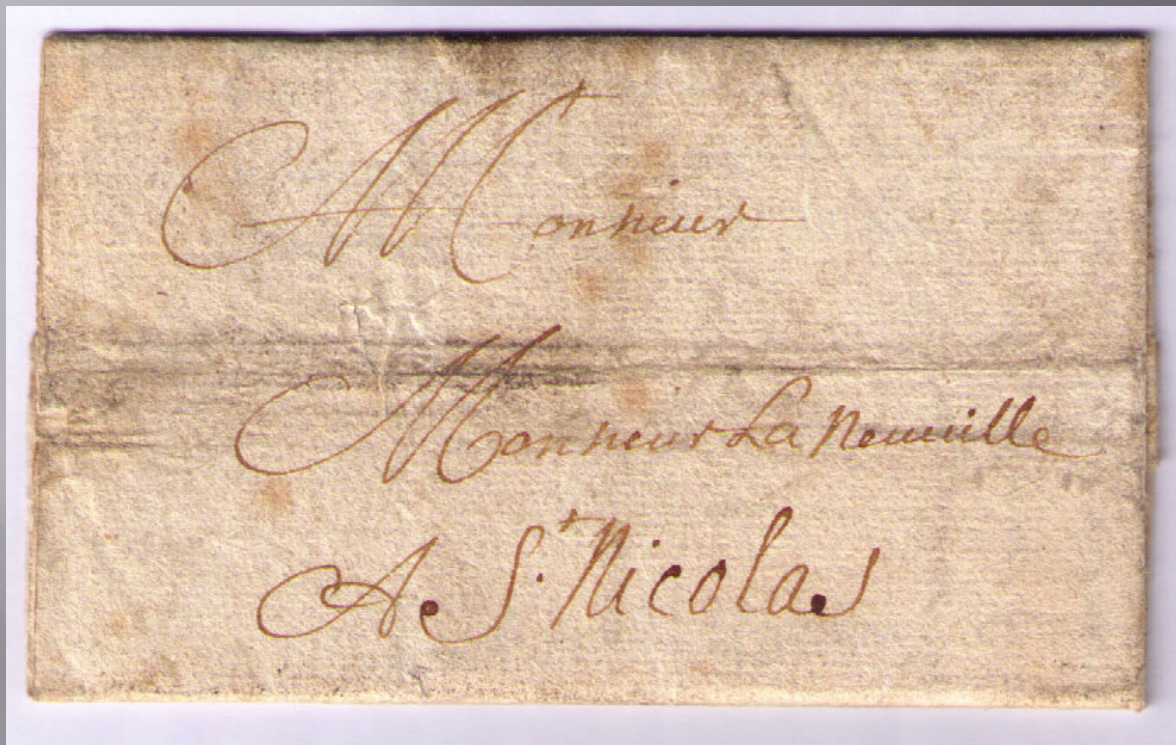 Monsieur
Monsieur La Neuuille
A St Nicolas